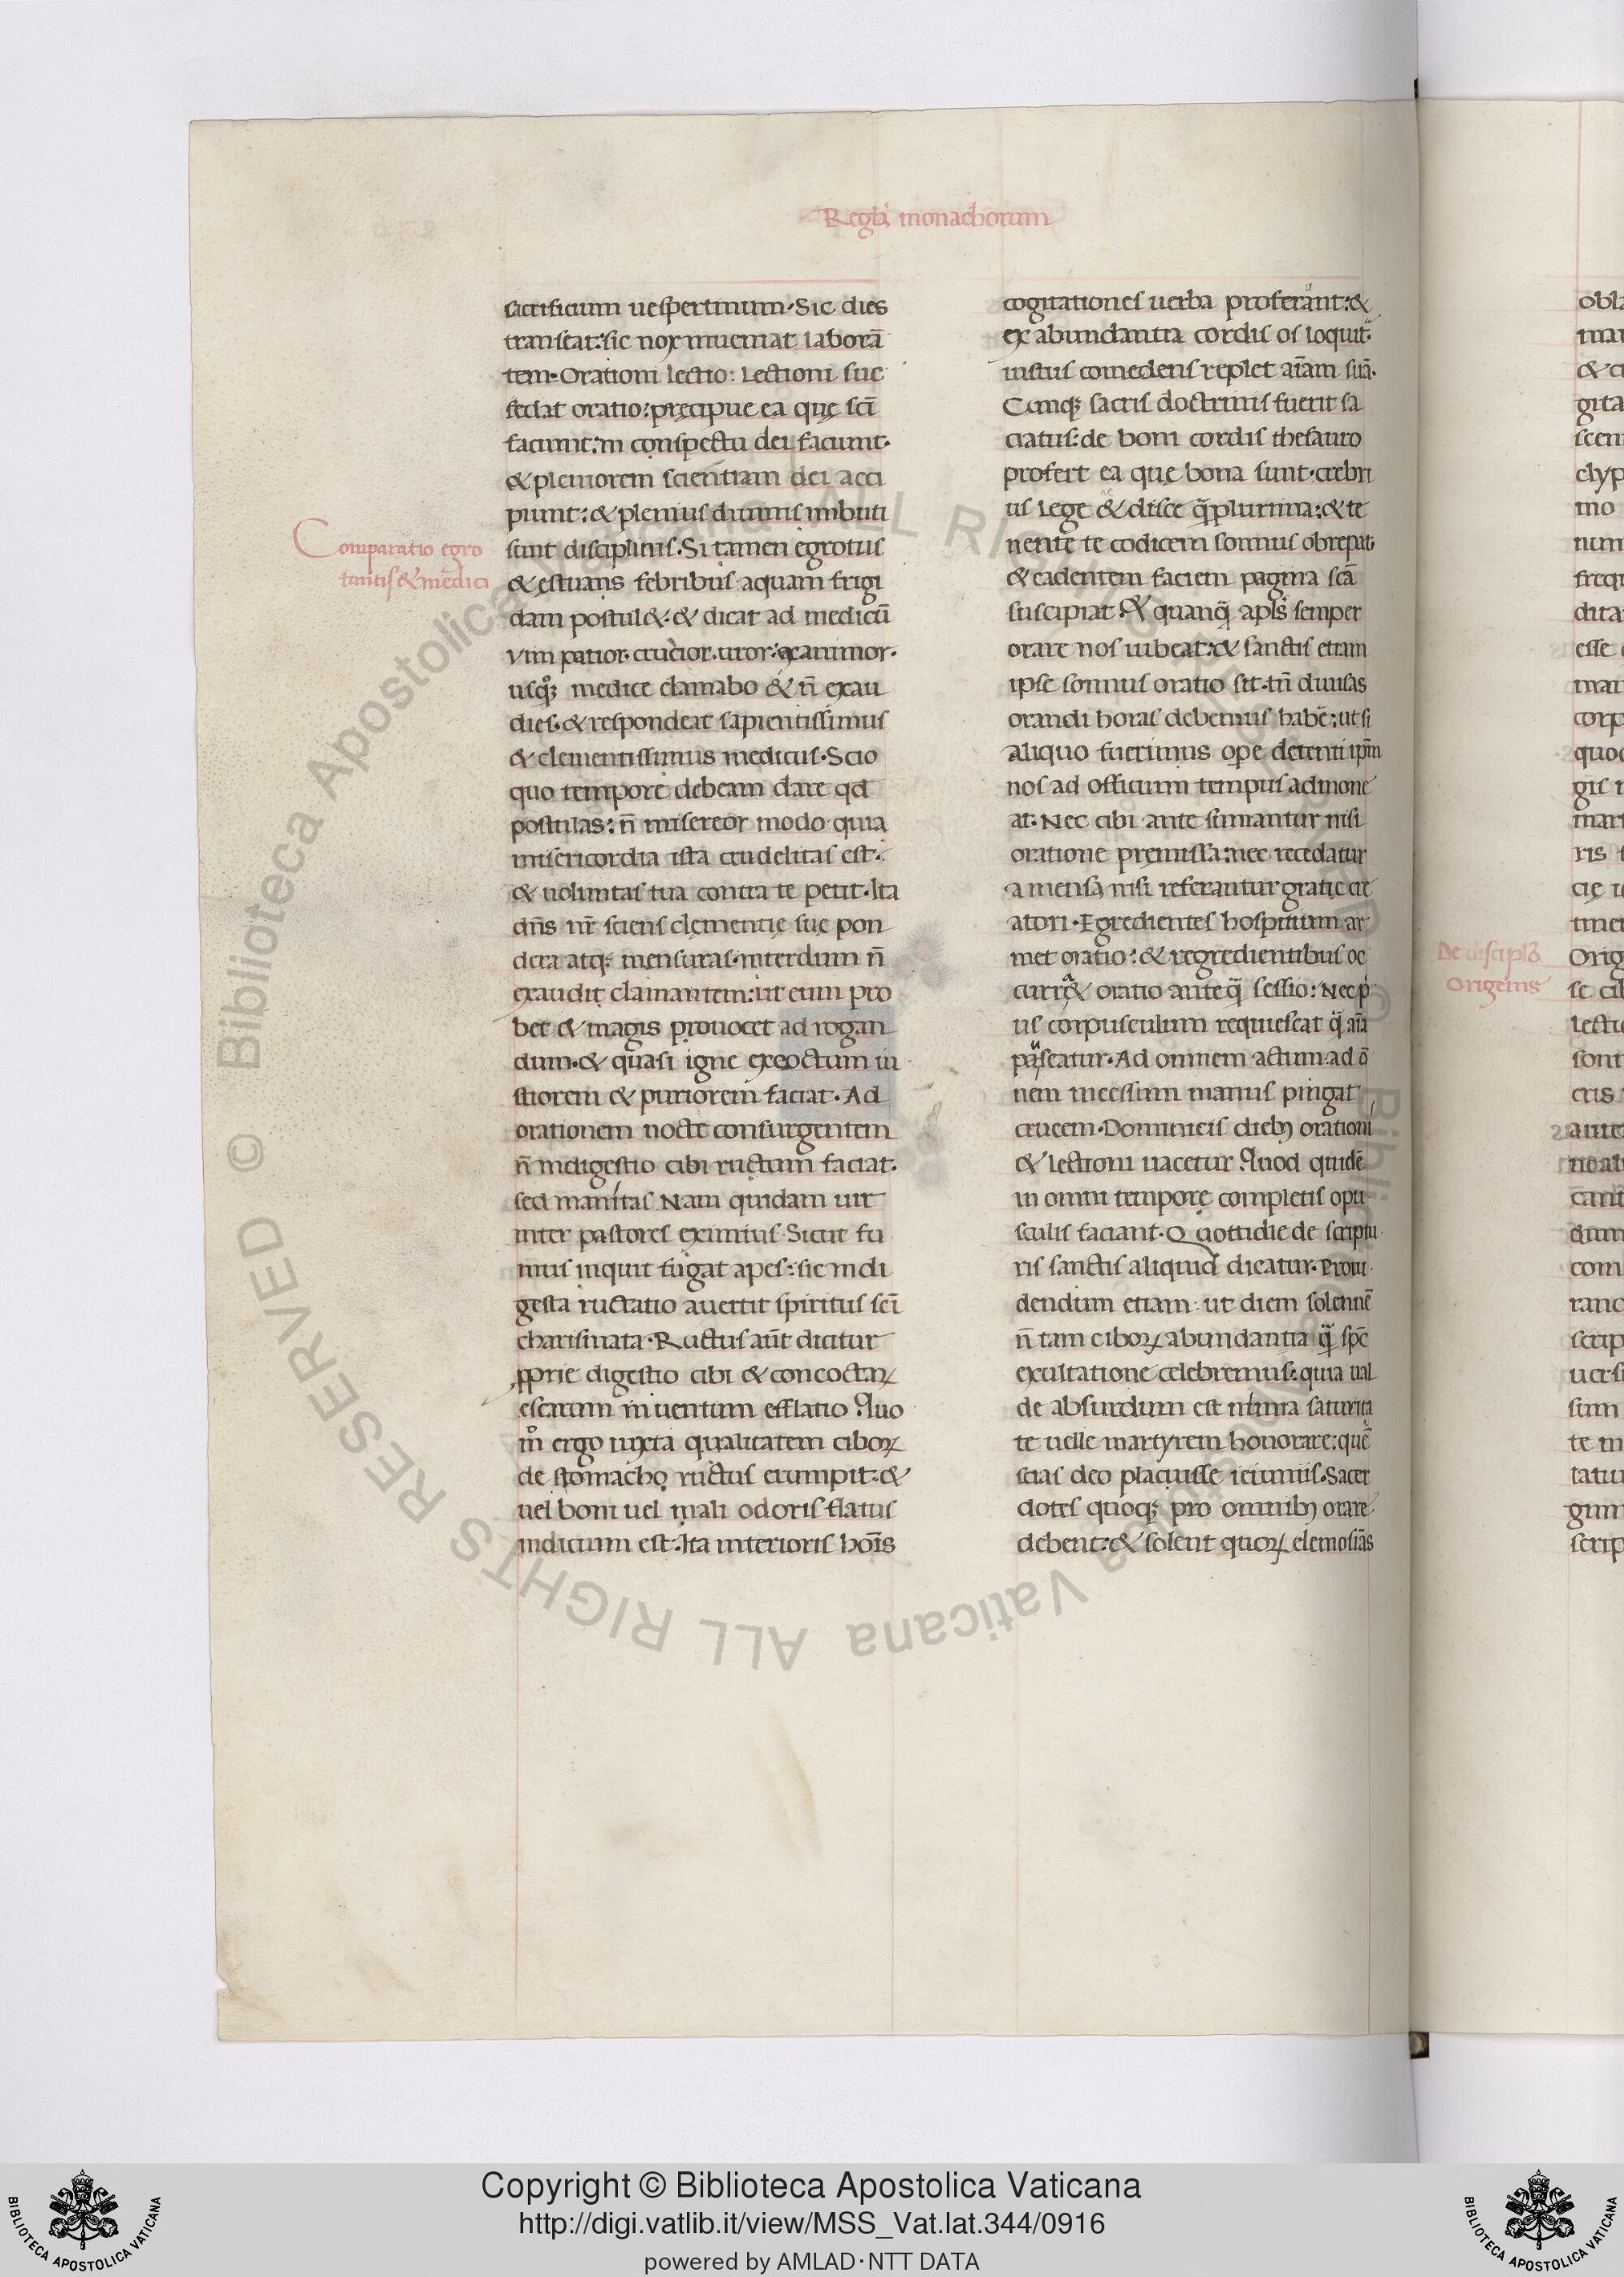 Regula monachorum
sacrificium uespertinum. Sic dies
transeat: sic nox inueniat laborā
tem. Orationi lectio: Lectioni suc
cedat oratio: pręcipue ea quę scī
faciunt: in conspectu dei faciunt.
& pleniorem scientiam dei acci
piunt: & plenius diuinis imbuti
sunt disciplinis. Si tamen egrotus
& ęstuans febribus aquam frigi
dam postul&. & dicat ad medicū
vim patior. crucior. uror: exanimor.
usq; medice clamabo & n̄ exau
dies. & respondeat sapientissimus
& clementissimus medicus. Scio
quo tempore debeam dare qd
postulas: n̄ misereor modo quia
misericordia ista crudelitas est.
& uoluntas tua contra te petit. Ita
dn̄s nr̄ sciens clęmentię suę pon
dera atq; mensuras. interdum n̄
exaudit clamantem: ut eum pro
bet & magis prouocet ad rogan
dum. & quasi igne excoctum iu
stiorem & puriorem faciat. Ad
orationem nocte consurgentem
n̄ indigestio cibi ructum faciat.
sed inanitas Nam quidam uir
inter pastores eximius. Sicut fu
mus inquit fugat apes: sic indi
gesta ructatio auertit spiritus scī
charismata. Ructus aūt dicitur
ꝓprie digestio cibi & concoctaꝝ
escarum in uentum efflatio Quo
m̊ ergo iuxta qualitatem ciboꝝ
de stomacho ructus erumpit: &
uel boni uel mali odoris flatus
indicium est: Ita interioris hoīs
Comparatio egro
tantis & medici
cogitationes uerba proferant: &
ex abundantia cordis os loquit̃.
iustus comedens replet aīam suā.
Cunq; sacris doctrinis fuerit sa
ciatus: de boni cordis thesauro
profert ea quę bona sunt. crebri
us Lege & disce q̃plurima: & te
nente te codicem somnus obrepat.
& cadentem faciem pagina scā
suscipiat. & quanq̃ apl̄s semper
orare nos iubeat: & sanctis etiam
ipse somnus oratio sit. tn̄ diuisas
orandi horas debemus habē: ut si
aliquo fuerimus opere detenti ipm̄
nos ad officium tempus admone
at. Nec cibi ante sumantur nisi
oratione premissa: nec recedatur
a mensa nisi referantur gratię cre
atori. Egredientes hospitium ar
met oratio: & regredientibus oc
curr& oratio anteq̃ sessio: Nec p̓
us corpusculum requiescat q̃ aīa
pascatur. Ad omnem actum: ad ō
nem incessum manus pingat
crucem. Dominicis dieb; orationi
& lectioni uacetur. Quod quidē
in omni tempore completis opu
sculis faciant. Quottidie de scriptu
ris sanctis aliquid dicatur. Proui
dendum etiam: ut diem solennē
n̄ tam ciboꝝ abundantia q̃ spc̄
exultatione celebremus: quia ual
de absurdum est nimia saturita
te uelle martyrem honorare: quē
scias deo placuisse ieiuniis. Sacer
dotes quoq; pro omnib; orare
debent: & solent quoꝝ elemosīas
De discipl̓o
Origenis